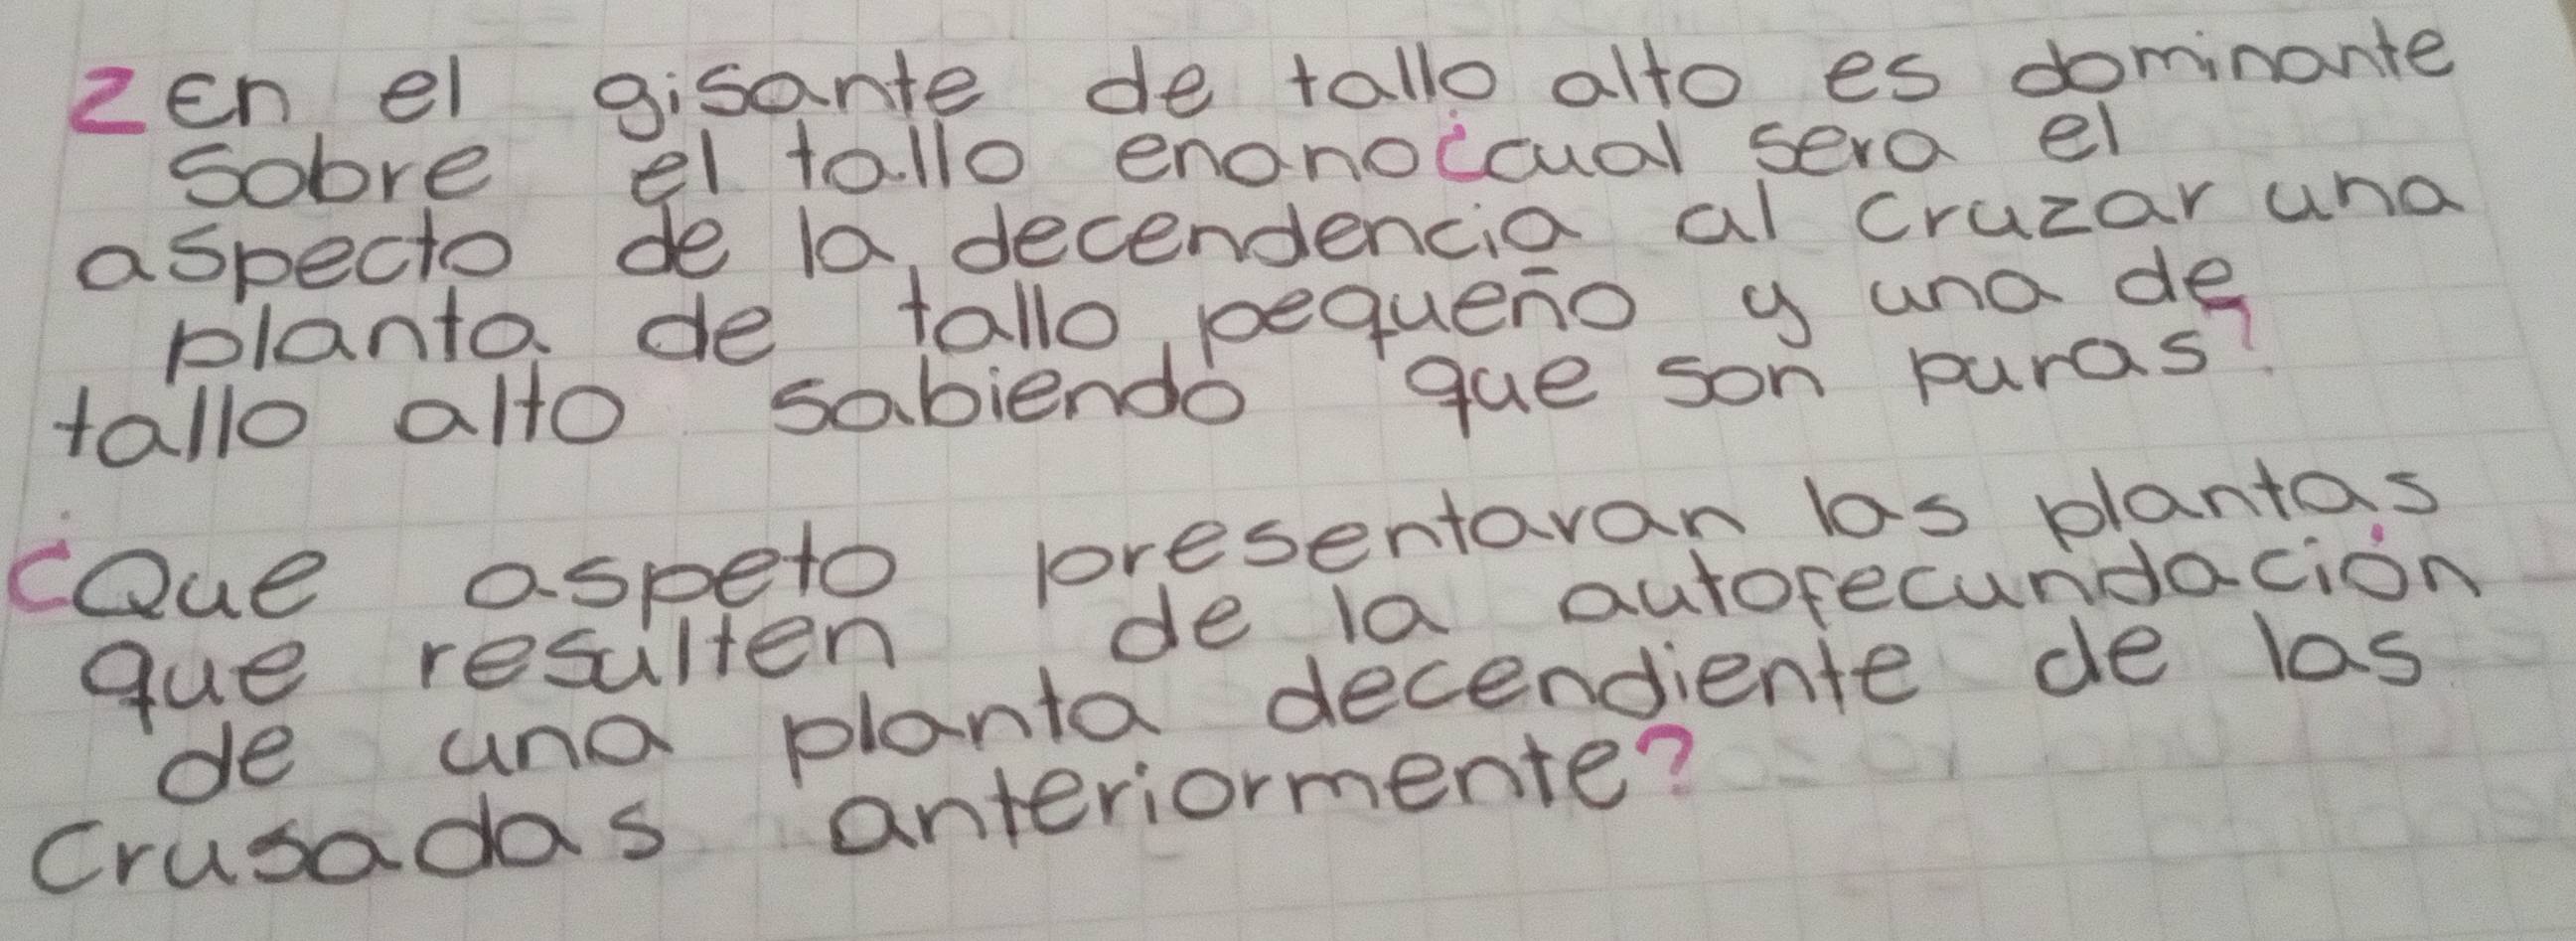 2 En el gisante de tallo alto es dominante
sobre el tallo enano ¿cual sera el
aspecto de la decendencia al cruzar una
planta de tallo pequeño y una de
tallo alto sabiendo que son puras?
¿Que aspeto presentaran las plantas
que resulten de la autofecundación
de una planta decendiente de las
crusadas anteriormente?